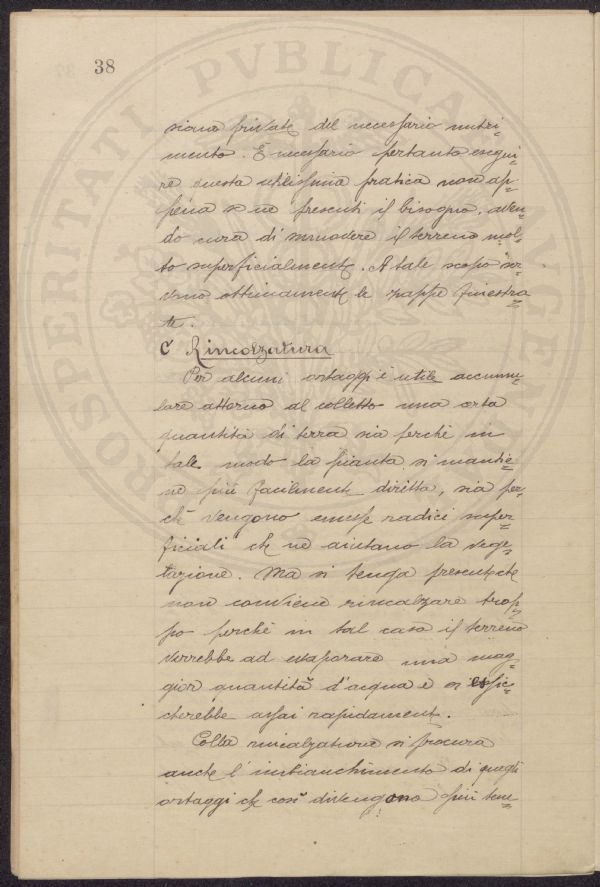 38
siano private del necessario nutri=
mento. È necessario pertanto esegui=
re questa utilissima pratica non ap=
pena se ne presenti il bisogno, aven=
do cura di smuovere il terreno mol=
to superficialmente. A tale scopo ser=
vono ottimamente le zappe finestra=
te.
C Rincalzatura
Per alcuni ortaggi è utile accumu=
lare attorno al colletto una certa
quantità di terra sia perchè in
tale modo la pianta si mantie=
ne più facilmente diritta, sia per=
chè vengono emesse radici super=
ficiali che ne aiutano la vege=
tazione. Ma si tenga presente che
non conviene rincalzare trop=
po perchè in tal caso il terreno
verrebbe ad evaporare una mag=
gior quantità d'acqua e si essic=
cherebbe assai rapidamente.
Colla rincalzatura si procura
anche l'imbianchimento di quegli
ortaggi che così divengono più tene
PROSPERITATI PVBLICAE AVGENDAE